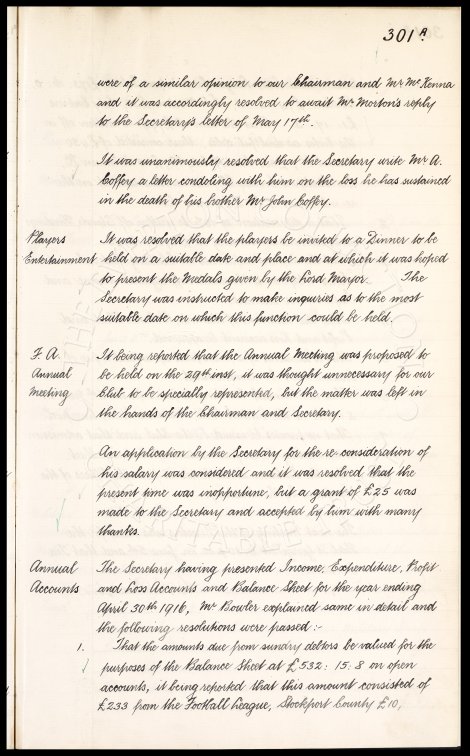 301 A.
were of a similar opinion to our Chairman and Mr McKenna
and it was accordingly resolved to await Mr Morton's reply
to the Secretary's letter of May 17th.
It was unanimously resolved that the Secretary write Mr A.
Coffey a letter condoling with him on the loss he has sustained
in the death of his brother Mr John Coffey.
Players It was resolved that the players be invited to a Dinner to be
Entertainment held on a suitable date and place and at which it was hoped
to present the Medals given by the Lord Mayor. The
Secretary was instructed to make inquiries as to the most
suitable date on which this function could be held.
F A. It being reported that the Annual Meeting was proposed to
Annual be held on the 29th inst, it was thought unnecessary for our
Meeting Club to be specially represented, but the matter was left in
the hands of the Chairman and Secretary.
An application by the Secretary for the re-consideration of
his salary was considered and it was resolved that the
present time was inopportune, but a grant of £25 was
made to the Secretary and accepted by him with many
thanks.
Annual The Secretary having presented Income, Expenditure, Profit
Accounts and Loss Accounts and Balance Sheet for the year ending
April 30th 1916, Mr Bowler explained same in detail and
the following resolutions were passed :-
1. That the amounts due from sundry debtors be valued for the
purposes of the Balance Sheet at £532 : 15. 8 on open
accounts, it being reported that this amount consisted of
£233 from the Football League, Stockport County £10,